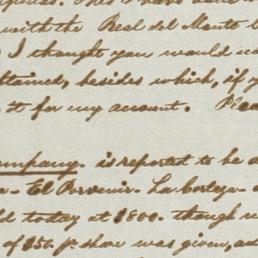 with the Real del Monte
I thought you would
tained, besides which, if y
it for my account.
ompany - is reported to be
El Porvenir - La
d today at $800. though
of $50 pr share was given, ad